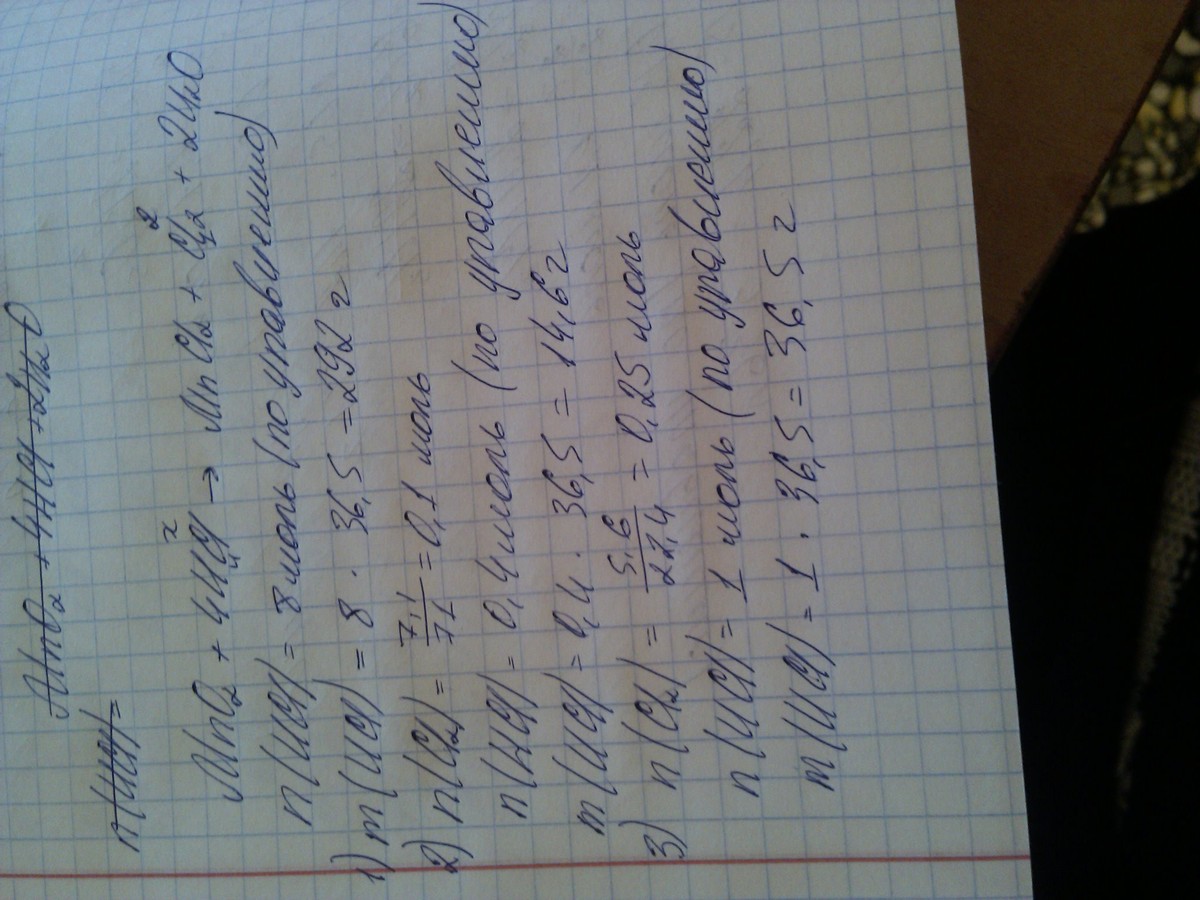 MnO₂ + 4HCl + 2H₂O
n(HCl) =
x 2
MnO₂ + 4HCl → MnCl₂ + Cl₂ + 2H₂O
4 1
n(HCl) = 8 моль (по уравнению)
1) m(HCl) = 8 · 36,5 = 292 г
2) n(Cl₂) = 7,1/71 = 0,1 моль
n(HCl) = 0,4 моль (по уравнению)
m(HCl) = 0,4 · 36,5 = 14,6 г
3) n(Cl₂) = 5,6/22,4 = 0,25 моль
n(HCl) = 1 моль (по уравнению)
m(HCl) = 1 · 36,5 = 36,5 г